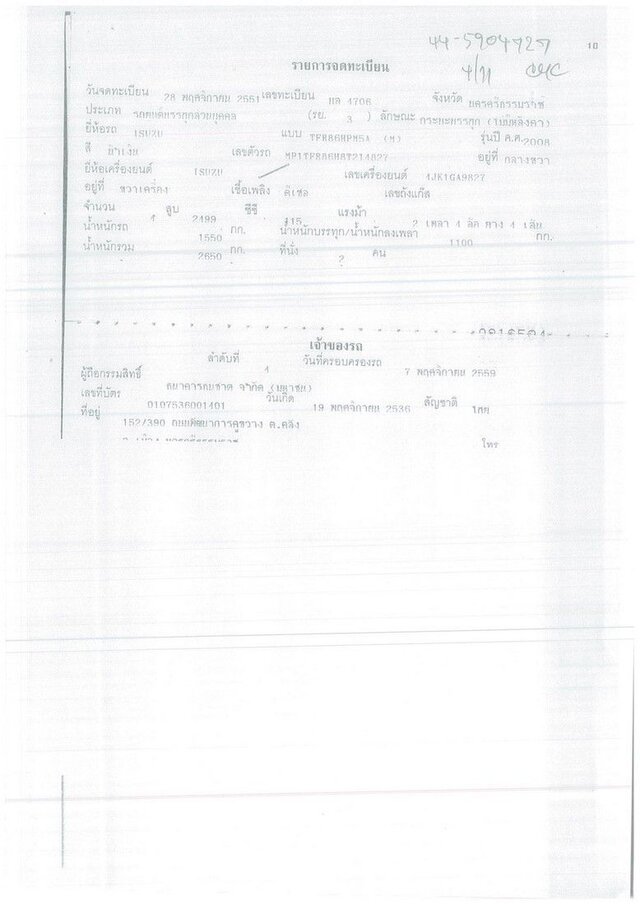 44-5904727
10
รายการจดทะเบียน
4/11
วันจดทะเบียน 28 พฤศจิกายน 2551 เลขทะเบียน 4706 จังหวัด นครศรีธรรมราช
ประเภท รถยนต์บรรทุกส่วนบุคคล (รย. 3 ) ลักษณะ กระบะบรรทุก (ไม่มีหลังคา)
ยี่ห้อรถ ISUZU แบบ (M) รุ่นปี ค.ศ.2008
สี น้ำเงิน เลขตัวรถ MP1TFR86H8T214827 อยู่ที่ กลางขวา
ยี่ห้อเครื่องยนต์ ISUZU เลขเครื่องยนต์ 4JK1GA9827
อยู่ที่ ขวาเครื่อง เชื้อเพลิง ดีเซล เลขถังแก๊ส
จำนวน 4 สูบ 2499 ซีซี 115 แรงม้า 2 เพลา 4 ล้อ ยาง 4 เส้น
น้ำหนักรถ 1550 กก. น้ำหนักบรรทุก/น้ำหนักลงเพลา 1100 กก.
น้ำหนักรวม 2650 กก. ที่นั่ง 2 คน
เจ้าของรถ
ลำดับที่ 4 วันที่ครอบครองรถ 7 พฤศจิกายน 2559
ผู้ถือกรรมสิทธิ์ ธนาคารธนชาต จำกัด (มหาชน)
เลขที่บัตร 0107536001401 วันเกิด 19 พฤศจิกายน 2536 สัญชาติ ไทย
ที่อยู่ 152/390 ถนนพัฒนาการคูขวาง ต.คลัง
โทร